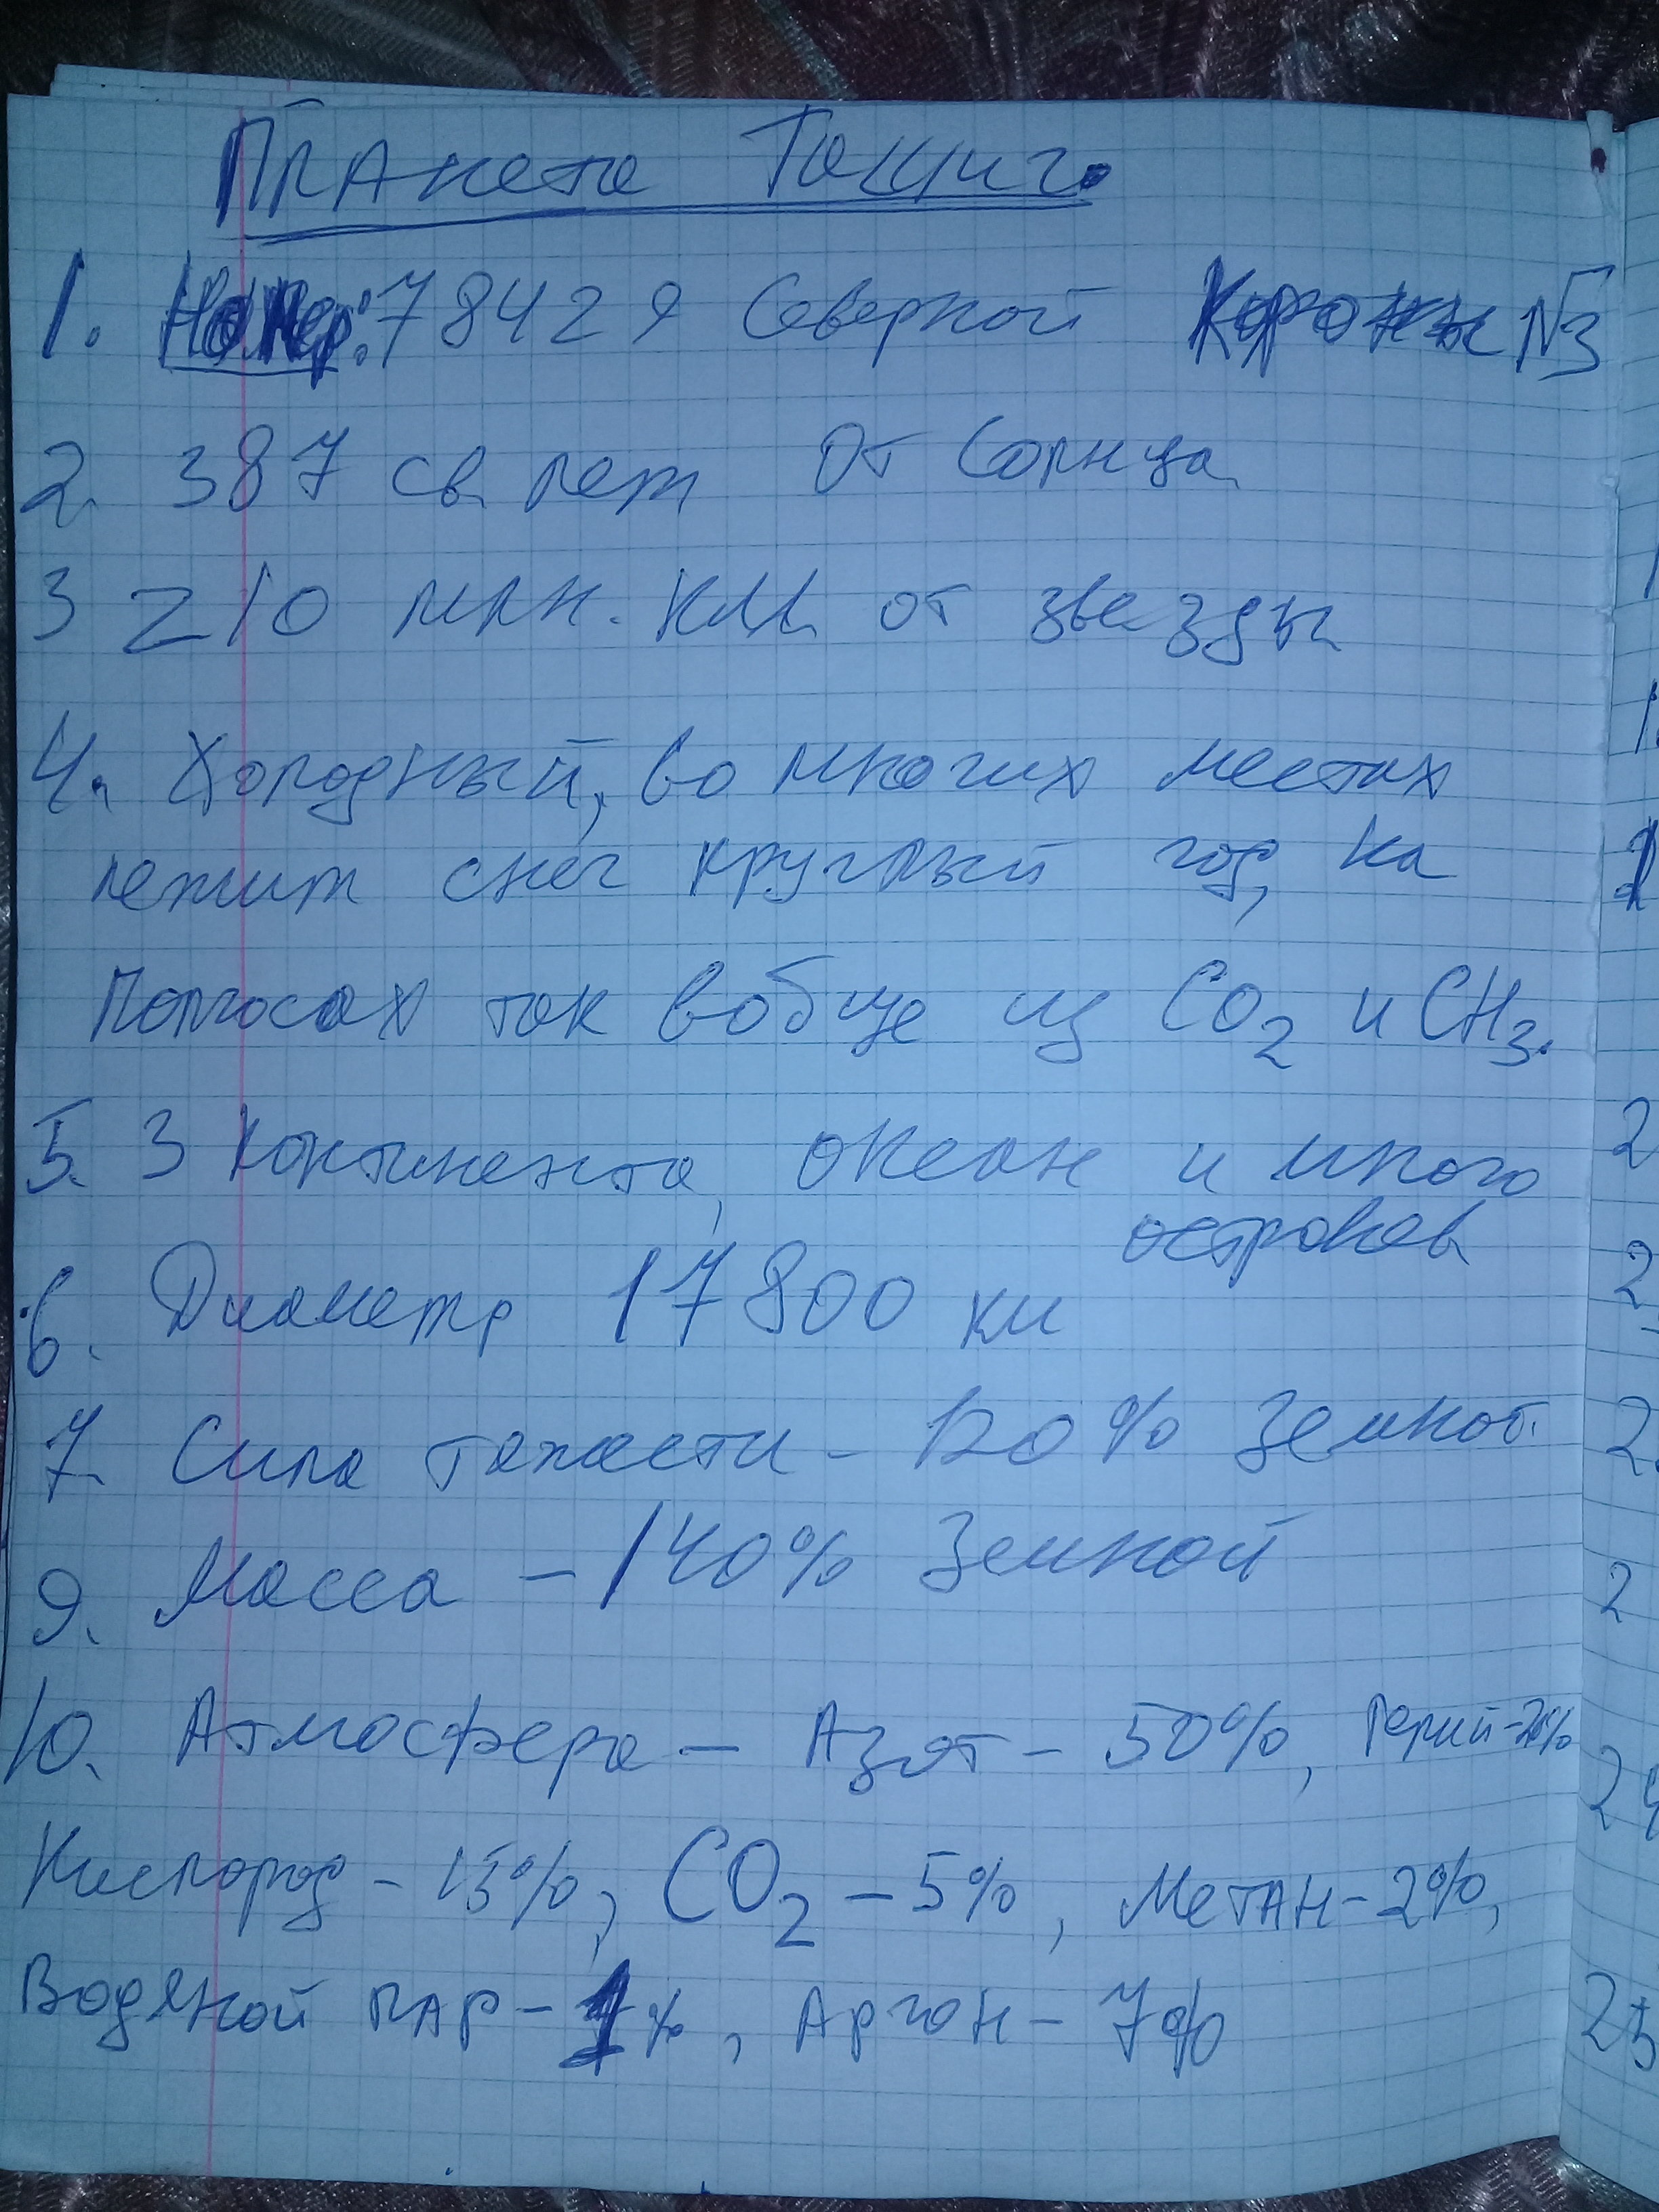 Планета
1. Номер: 78429 Северной Короны №3
2. 387 св. лет от Солнца
3 210 млн. км. от звезды
4. Холодный, во многих местах
лежит снег круглый год, на
Полюсах так вобще из CO2 и CH3.
5. 3 континента, океан и много
островов
6. Диаметр 17 800 км
7. Сила тяжести - 120% Земной.
9. Масса - 140% Земной
10. Атмосфера - Азот - 50%, Гелий - 20%
Кислород - 15%, CO2 - 5%, Метан - 2%,
Водяной пар - 1%, Аргон - 7%
1
1.
2
2
2
2
24
25